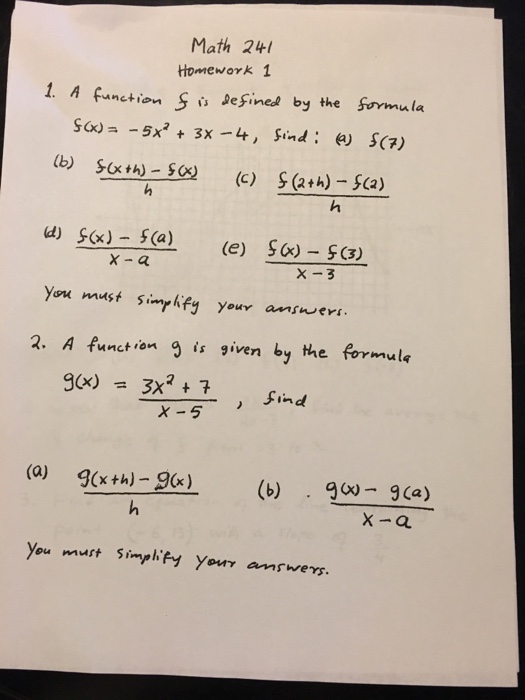 Math 241
Homework 1
1. A function f is defined by the formula
f(x) = -5x² + 3x - 4, find: (a) f(7)
(b) f(x+h) - f(x) / h (c) f(2+h) - f(2) / h
(d) f(x) - f(a) / x - a (e) f(x) - f(3) / x - 3
You must simplify your answers.
2. A function g is given by the formula
g(x) = 3x² + 7 / x - 5 , find
(a) g(x+h) - g(x) / h (b) . g(x) - g(a) / x - a
You must simplify your answers.